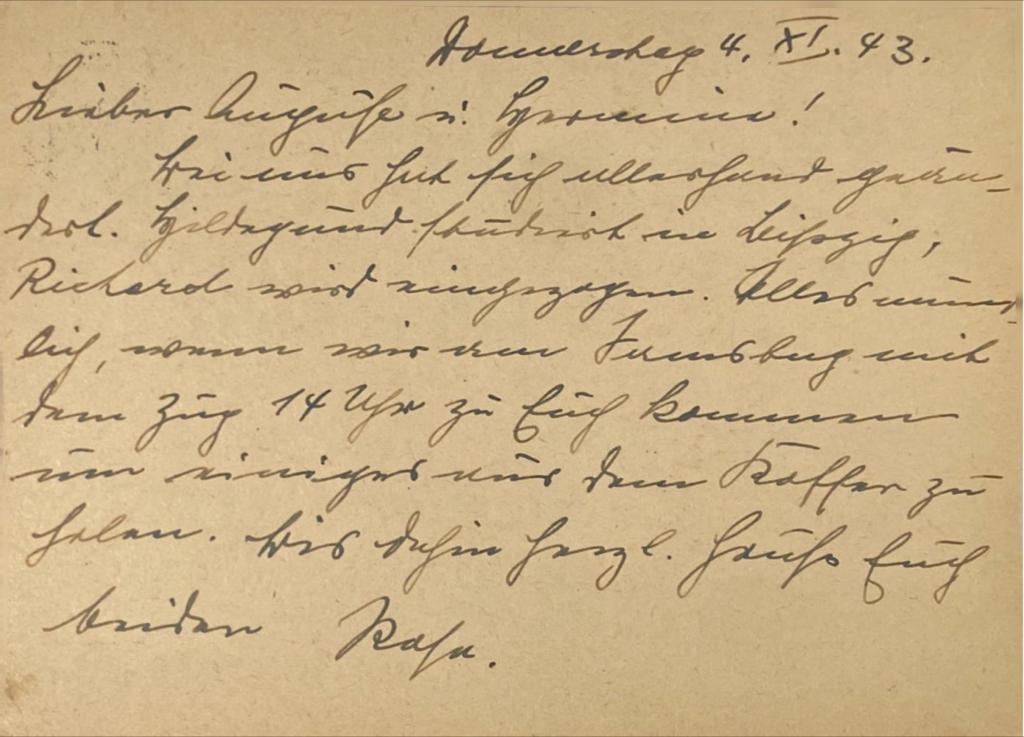 Donnerstag 4. XI. 43.
Lieber August u. Hermine!
Bei uns hat sich allerhand geän-
dert. Hildegund studiert in Leipzig,
Richard wird eingezogen. Alles münd-
lich, wenn wir am Samstag mit
dem Zug 14 Uhr zu Euch kommen
um einiges aus dem Koffer zu
holen. Bis dahin herzl. Grüße Euch
beiden Rosa.